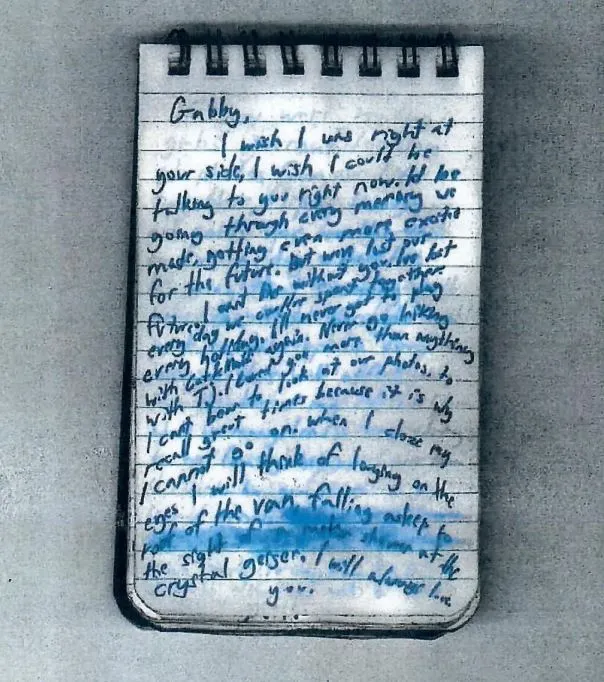 Gabby,
I wish I was right at
your side, I wish I could be
talking to you right now. Id be
going through every memory we
made, getting even more excited
for the future. But weve lost our
future. I cant live without you. Ive lost
every day we couldve spent together.
every holiday. Ill never get to play
with again. Never go hiking
with TJ. I loved you more than anything
I cant bear to look at our photos. to
recall great times because it is why
I cannot go on. when I close my
eyes I will think of laughing on the
roof of the van falling asleep to
the sight of at the
crystal geiser. I will always love
you.